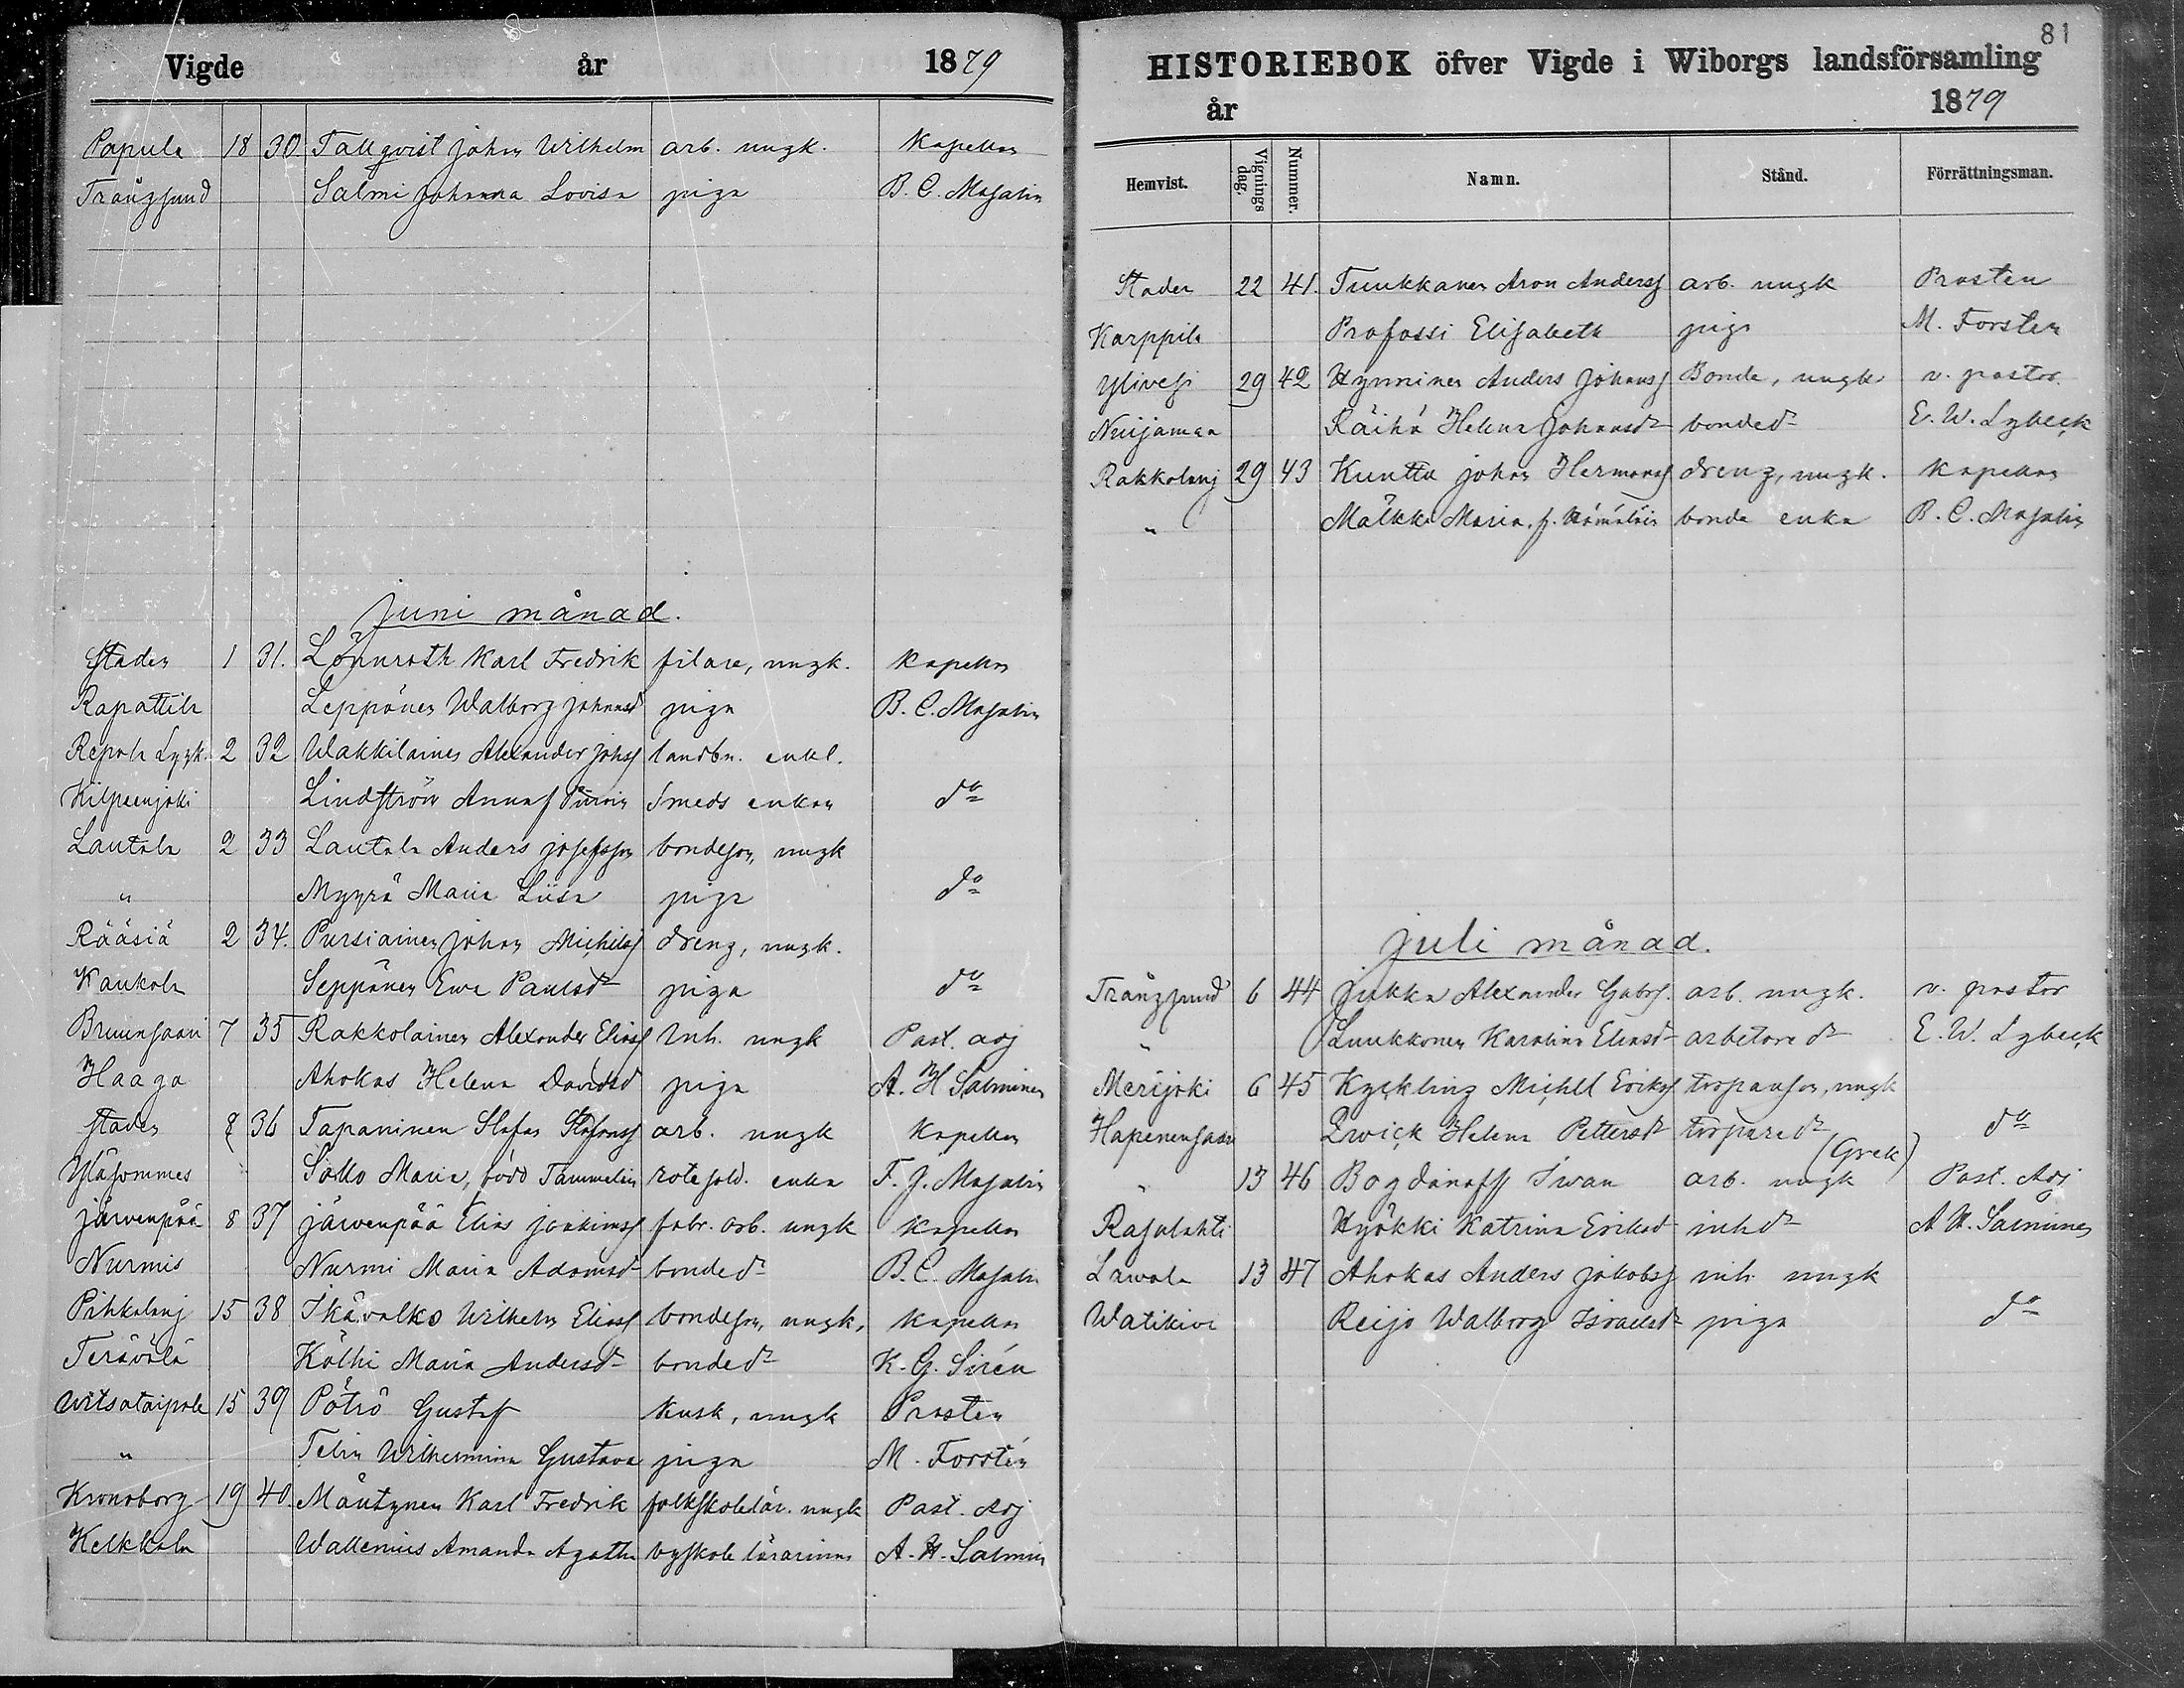 Vigde år 1879
Papula 18 30 Tallqvist Johan Wilhelm arb. ungk. Kapellan
Trångsund Salmi Johanna Lovisa piga B. C. Masalin
Juni månad.
Staden 1 31. Lönnroth Karl Fredrik filare, ungk. Kapellan
Rapattila Leppänen Walborg Johansd piga B. C. Masalin
Repola 2 32 Wakkilainen Alexander Johss landbo. enkl.
Kilpeenjoki Lindström Anna f. smeds enkan do
Lautala 2 33 Lautala Anders Josefsson bondeson, ungk
" Myyrä Maria Liisa piga do
Rääsiä 2 34. Pursiainen Johan Michelss dreng, ungk.
Kaukola Seppänen Ewa Paulsdr piga do
Bruunsaari 7 35 Rakkolainen Alexander Eliass Inh. ungk Past. adj
Haaga Ahokas Helena Davidsd piga A. H Salminen
Staden 8 36 Tapaninen Stafan Stafanss arb. ungk Kapellan
Yläsommes Sallo Maria, född Tammelin rotesold. enka F. J. Masalin
Järvenpää 8 37 Järvenpää Elias Joakimss fabr. arb. ungk Kapellan
Nurmis Nurmi Maria Adamsd bondedr B. C. Masalin
Pihkalanj 15 38 Ikävalko Wilhelm Eliass bondeson, ungk. Kapellan
Terävälä Kälhi Maria Andersdr bondedr K. G. Sirén
Witsataipale 15 39 Pötrö Gustaf kusk, ungk Prosten
" Telin Wilhelmina Gustava piga M. Forstén
Kronoborg 19 40. Mäntynen Karl Fredrik folkskolelär. ungk Past. Adj
Kelkkala Wallenius Amanda Agatha byskole lärarinna A. H. Salmin
81
HISTORIEBOK öfver Vigde i Wiborgs landsförsamling
år 1879
Hemvist. Vignings dag. Nummer. Namn. Stånd. Förrättningsman.
Staden 22 41. Tuukkanen Aron Anderss arb. ungk Prosten
Karppila Profossi Elisabeth piga M. Forsten
Ylivesi 29 42 Hynninen Anders Johanss Bonde, ungk v. pastor.
Nuijamaa Räihä Helena Johansdr bondedr E. W. Lybeck
Rakkolanj 29 43 Kunttu Johan Hermanss dreng, ungk. Kapellan
" Mälkki Maria, f. Hämäläin bonde enka B. C. Masalin
Juli månad.
Trångsund 6 44 Jukka Alexander Gabrs. arb. ungk. v. pastor
" Luukkonen Karolina Eliasdr arbetaredr E. W. Lybeck
Merijoki 6 45 Kyckling Michel Erikss torpareson, ungk
Hapenensaari Qwick Helena Pettersdr torparedr do
" 13 46 Bogdanoff Iwan arb. ungk (Grek) Past. Adj
Rajalahti Hyökki Katrina Eriksd inhdr A H. Salminen
Lawola 13 47 Ahokas Anders Jakobss inh. ungk
Watikivi Reijo Walborg Israelsdr piga do